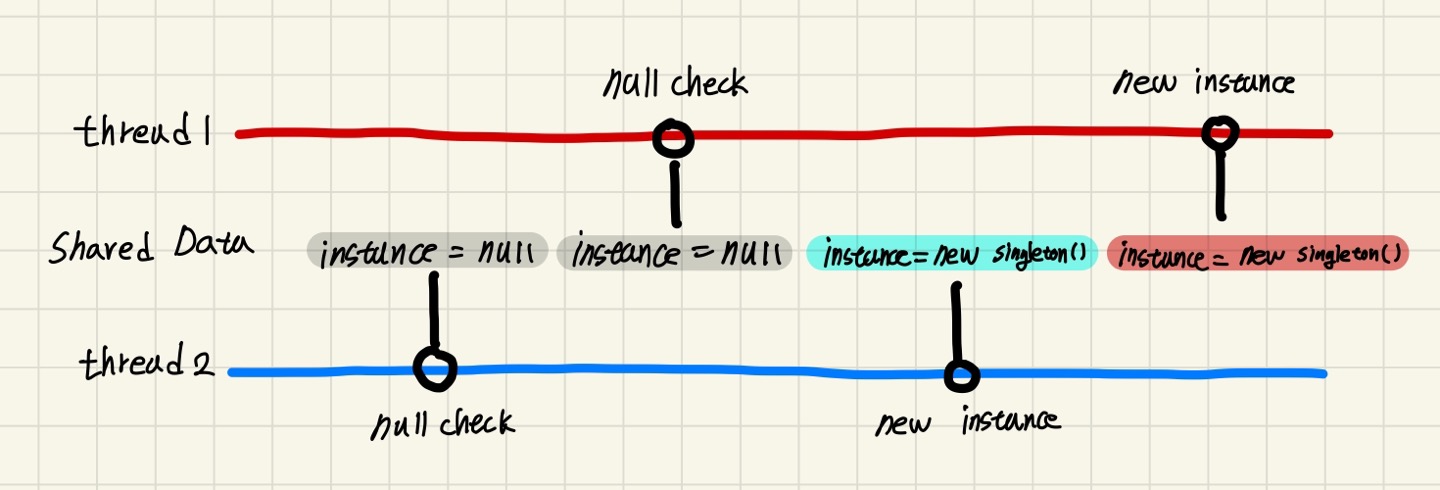 null check new instance
thread 1
Shared Data instance = null instance = null instance = new singleton() instance = new singleton()
thread 2
null check new instance